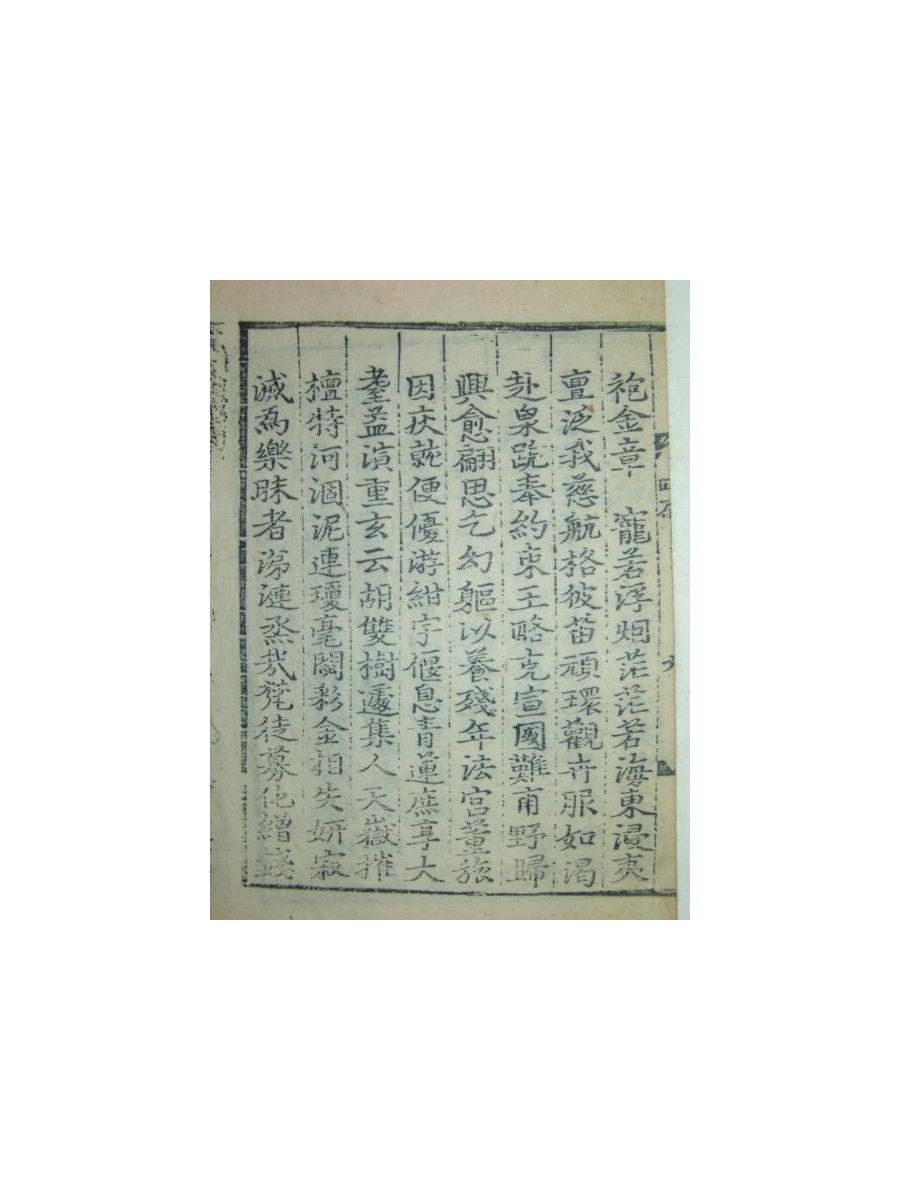 袍金章　寵若浮烟茫茫若海東浸夷
亶泛我慈航格彼苗頑環觀卉服如渴
赴泉跣奉約束王略克宣國難甫野歸
興愈翩思乞幻軀以養殘年法宮董旅
因疾就便優游紺宇偃息青蓮庶享大
耋益演重玄云胡雙樹遽集人天嶽摧
檀特河涸泥連瓊毫閟彩金相失妍寂
滅為樂昧者涕漣烝㢤髡徒募化繒錢